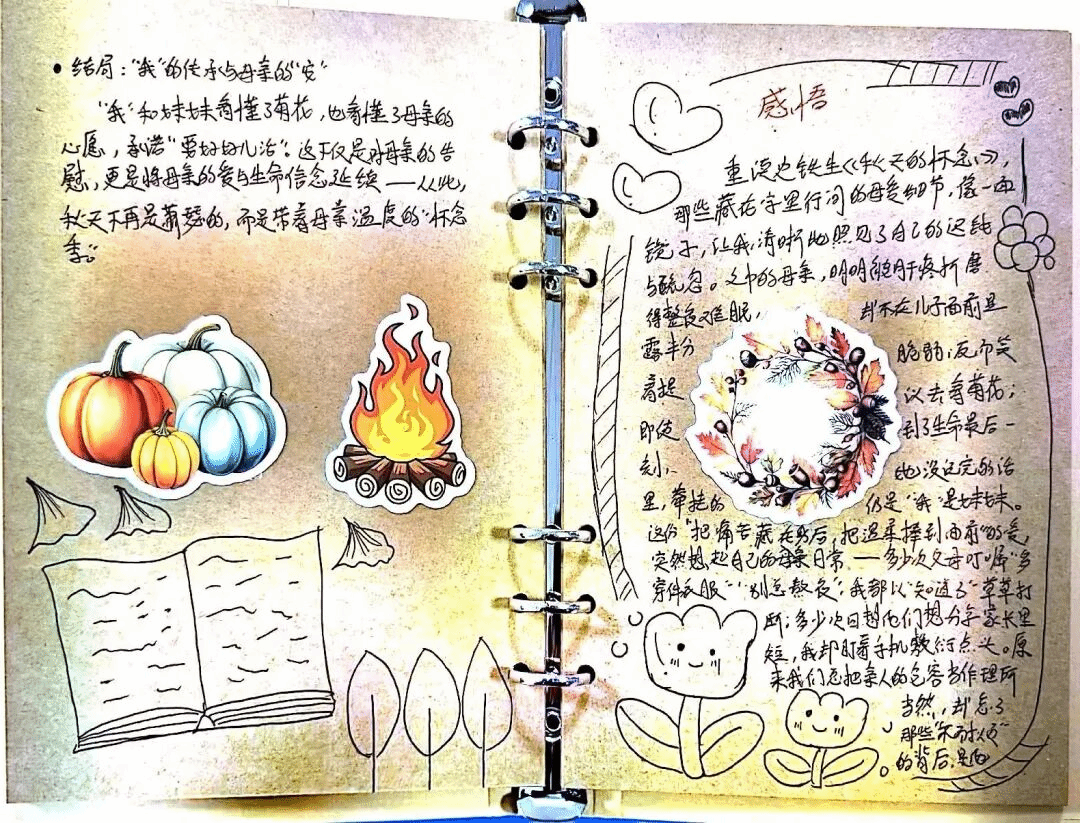 • 结局："我"的传承与母亲的"安"
"我"和妹妹看懂了菊花，也看懂了母亲的
心愿，承诺"要好好儿活"。这不仅是对母亲的告
慰，更是将母亲的爱与生命信念延续——从此，
秋天不再是萧瑟的，而是带着母亲温度的"怀念
季。"
感悟
重读史铁生《秋天的怀念》，
那些藏在字里行间的母爱细节，像一面
镜子，让我清晰地照见了自己的迟钝
与疏忽。文中的母亲，明明被肝疼折磨
得整夜难眠，却不在儿子面前显
露半分脆弱；反而笑
着提议去看菊花；
即使到了生命最后一
刻，她没说完的话
里，牵挂的仍是"我"是妹妹。
这份"把痛苦藏在身后，把温柔捧到面前"的爱，
突然想起自己的母亲日常——多少次父母叮嘱"多
穿件衣服""别总熬夜"，我都以"知道了"草草打
断；多少次回趟他们想分享家长里
短，我却盯着手机敷衍点头。原
来我们总把亲人的包容当作理所
当然，却忘了
那些"不耐烦"
的背后，是